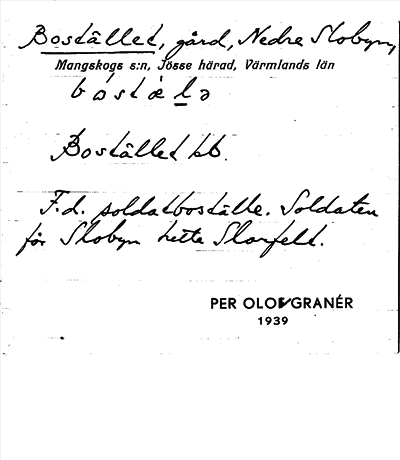 Bostället, gård, Nedre Slobyn,
Mangskogs s:n, Jösse härad, Värmlands län
bóstæ̀lə
Bostället kb.
F.d. soldatboställe. Soldaten
för Slobyn hette Slorfelt.
PER OLOF GRANÉR
1939